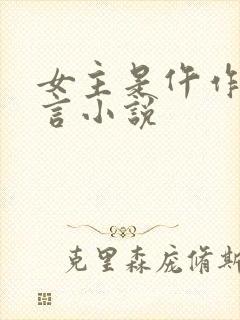 女主是仵作
言小说
克里森庞脩斯